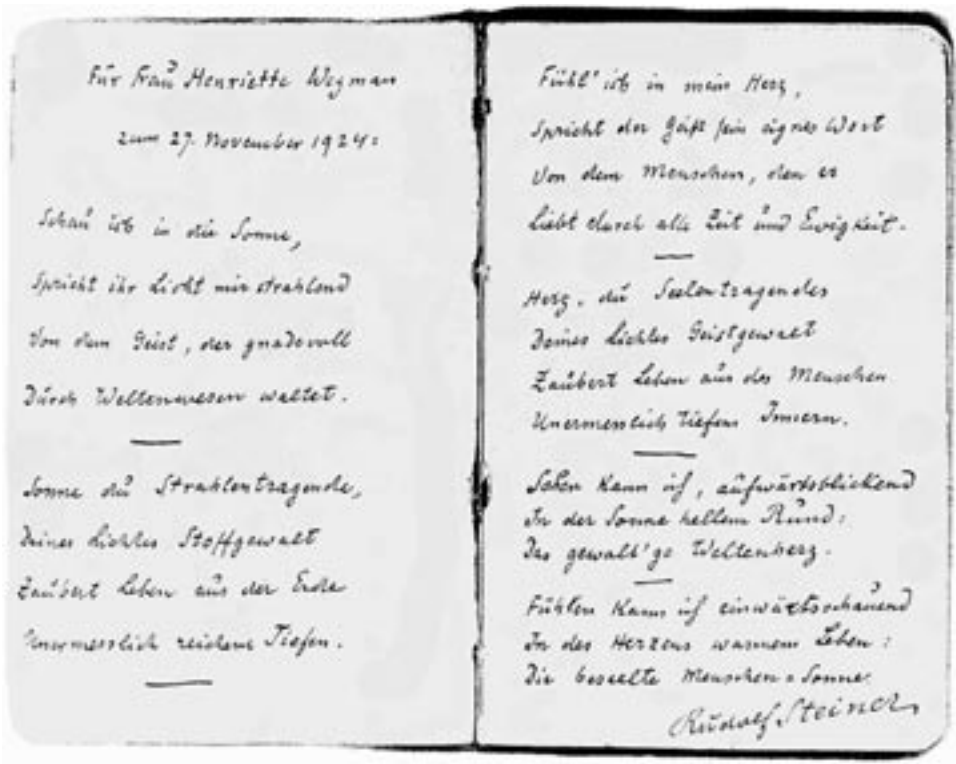 Für Frau Henriette Wegman
zum 27. November 1924:
Schau ich in die Sonne,
Spricht ihr Licht mir strahlend
Von dem Geist, der gnadevoll
Durch Weltenwesen waltet.
Sonne du Strahlentragende,
Deines Lichtes Stoffgewalt
Zaubert Leben aus der Erde
Unermesslich reichen Tiefen.
Fühl' ich in mein Herz,
Spricht der Geist sein eignes Wort
Von dem Menschen, den er
Liebt durch alle Zeit und Ewigkeit.
Herz, du Seelentragendes
Deines Lichtes Geistgewalt
Zaubert Leben aus des Menschen
Unermesslich tiefem Innern.
Sehen kann ich, aufwärtsblickend
In der Sonne hellem Rund:
Das gewalt'ge Weltenherz.
Fühlen kann ich einwärtsschauend
In des Herzens warmem Leben:
Die beseelte Menschen-Sonne.
Rudolf Steiner